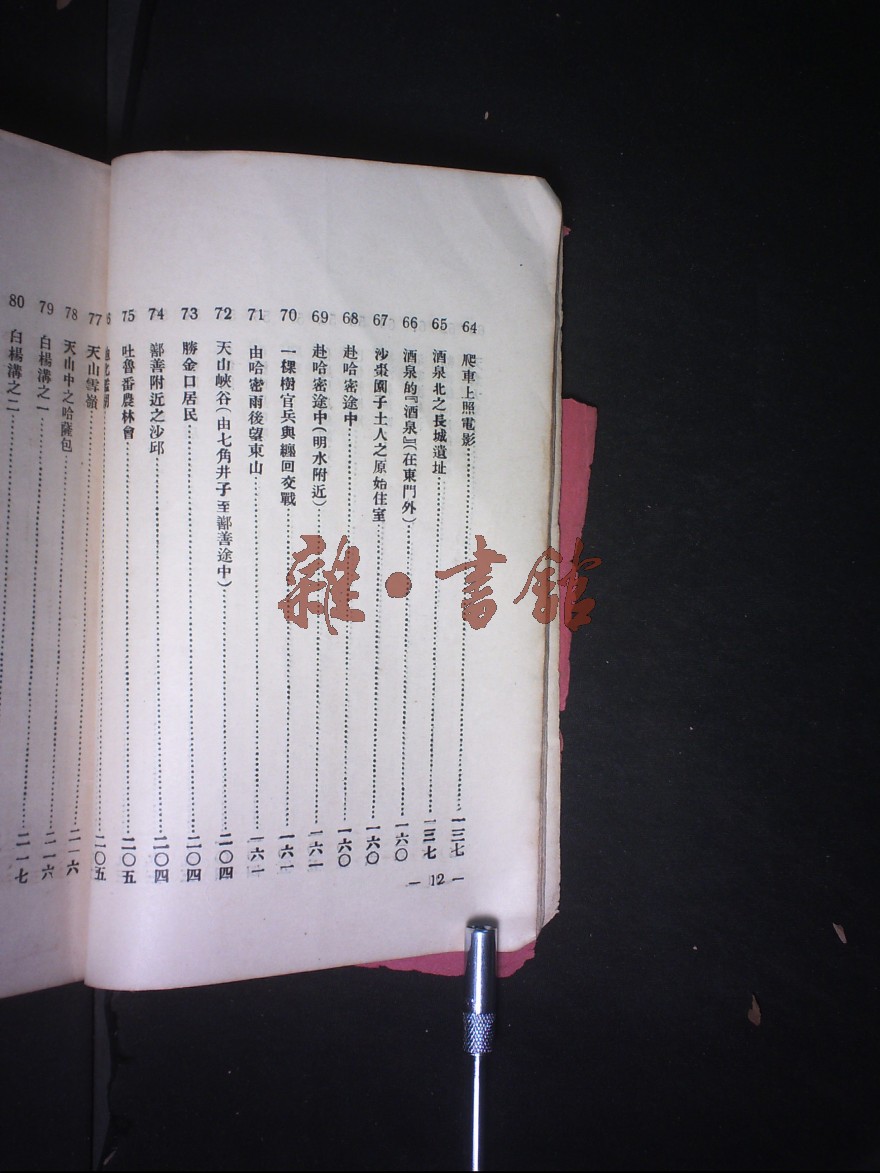 64 爬車上照電影……一三七
65 酒泉北之長城遺址……一三七
66 酒泉的『酒泉』(在東門外)……一六〇
67 沙棗園子土人之原始住室……一六〇
68 赴哈密途中……一六〇
69 赴哈密途中(明水附近)……一六一
70 一棵樹官兵與纏回交戰……一六一
71 由哈密雨後望東山……一六一
72 天山峽谷(由七角井子至鄯善途中)……二〇四
73 勝金口居民……二〇四
74 鄯善附近之沙邱……二〇四
75 吐魯番農林會……二〇五
二〇五
77 天山雪嶺
78 天山中之哈薩包……二一六
79 白楊溝之一……二一六
80 白楊溝之二……二一七
— 12 —
雜·書館